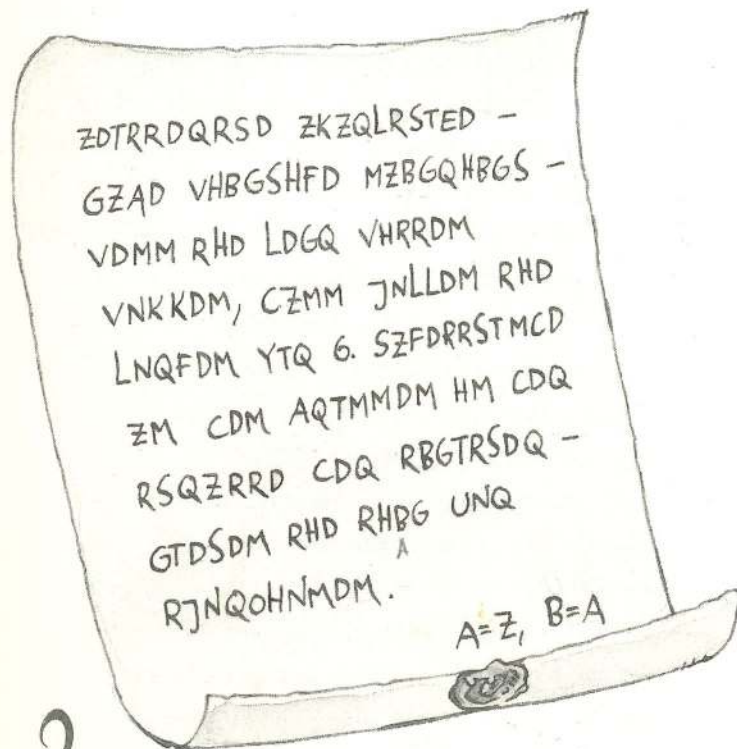 ZDTRRDQRSD ZKZQLRSTED –
GZAD VHBGSHFD MZBGQHBGS –
VDMM RHD LDGQ VHRRDM
VNKKDM, CZMM JNLLDM RHD
LNQFDM YTQ 6. SZFDRRSTMCD
ZM CDM AQTMMDM HM CDQ
RSQZRRD CDQ RBGTRSDQ –
GTDSDM RHD RHBG UNQ
A
RJNQOHNMDM.
A=Z, B=A